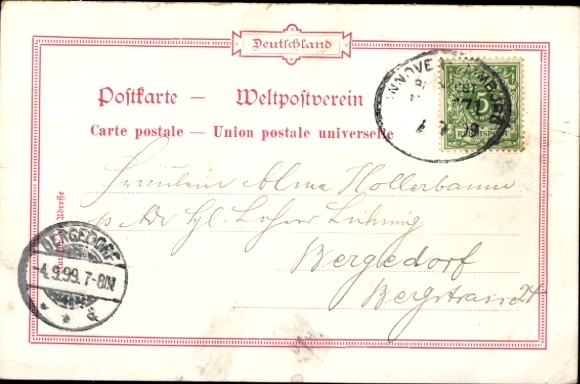 Deutschland
Postkarte — Weltpostverein
Carte postale — Union postale universelle
5
REICHSPOST
Fräulein Alma Hollerbaum
p. Adr
Bergedorf
Bergstrasse 24
BERGEDORF
-4.9.99.7-8N